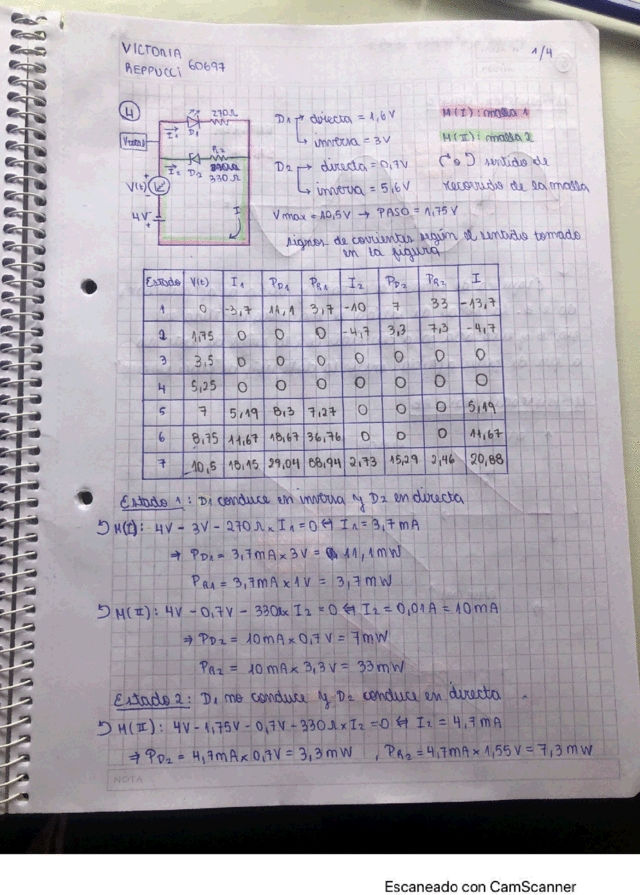 VICTORIA
REPPUCCI 60697
1/4
4
270Ω
I₁ D₁
R₂
I₂ D₂ 330Ω
V(t)
4V
I
D₁ → directa = 1,6V
↳ inversa = 3V
D₂ → directa = 0,7V
↳ inversa = 5,6V
Vmax = 10,5V → PASO = 1,75V
M(I): malla 1
M(II): malla 2
sentido de
recorrido de la malla
signos de corrientes según el sentido tomado
en la figura
Estado V(t) I₁ PD₁ PR₁ I₂ PD₂ PR₂ I
1 0 -3,7 11,1 3,7 -10 7 33 -13,7
2 1,75 0 0 0 -4,7 3,3 7,3 -4,7
3 3,5 0 0 0 0 0 0 0
4 5,25 0 0 0 0 0 0 0
5 7 5,19 8,3 7,27 0 0 0 5,19
6 8,75 11,67 18,67 36,76 0 0 0 11,67
7 10,5 18,15 29,04 88,94 2,73 15,29 2,46 20,88
Estado 1: D₁ conduce en inversa y D₂ en directa
M(I): 4V - 3V - 270Ω x I₁ = 0 ⇔ I₁ = 3,7mA
⇒ PD₁ = 3,7mA x 3V = 11,1mW
PR₁ = 3,7mA x 1V = 3,7mW
M(II): 4V - 0,7V - 330Ω x I₂ = 0 ⇔ I₂ = 0,01A = 10mA
⇒ PD₂ = 10mA x 0,7V = 7mW
PR₂ = 10mA x 3,3V = 33mW
Estado 2: D₁ no conduce y D₂ conduce en directa
M(II): 4V - 1,75V - 0,7V - 330Ω x I₂ = 0 ⇔ I₂ = 4,7mA
⇒ PD₂ = 4,7mA x 0,7V = 3,3mW , PR₂ = 4,7mA x 1,55V = 7,3mW
NOTA
Escaneado con CamScanner